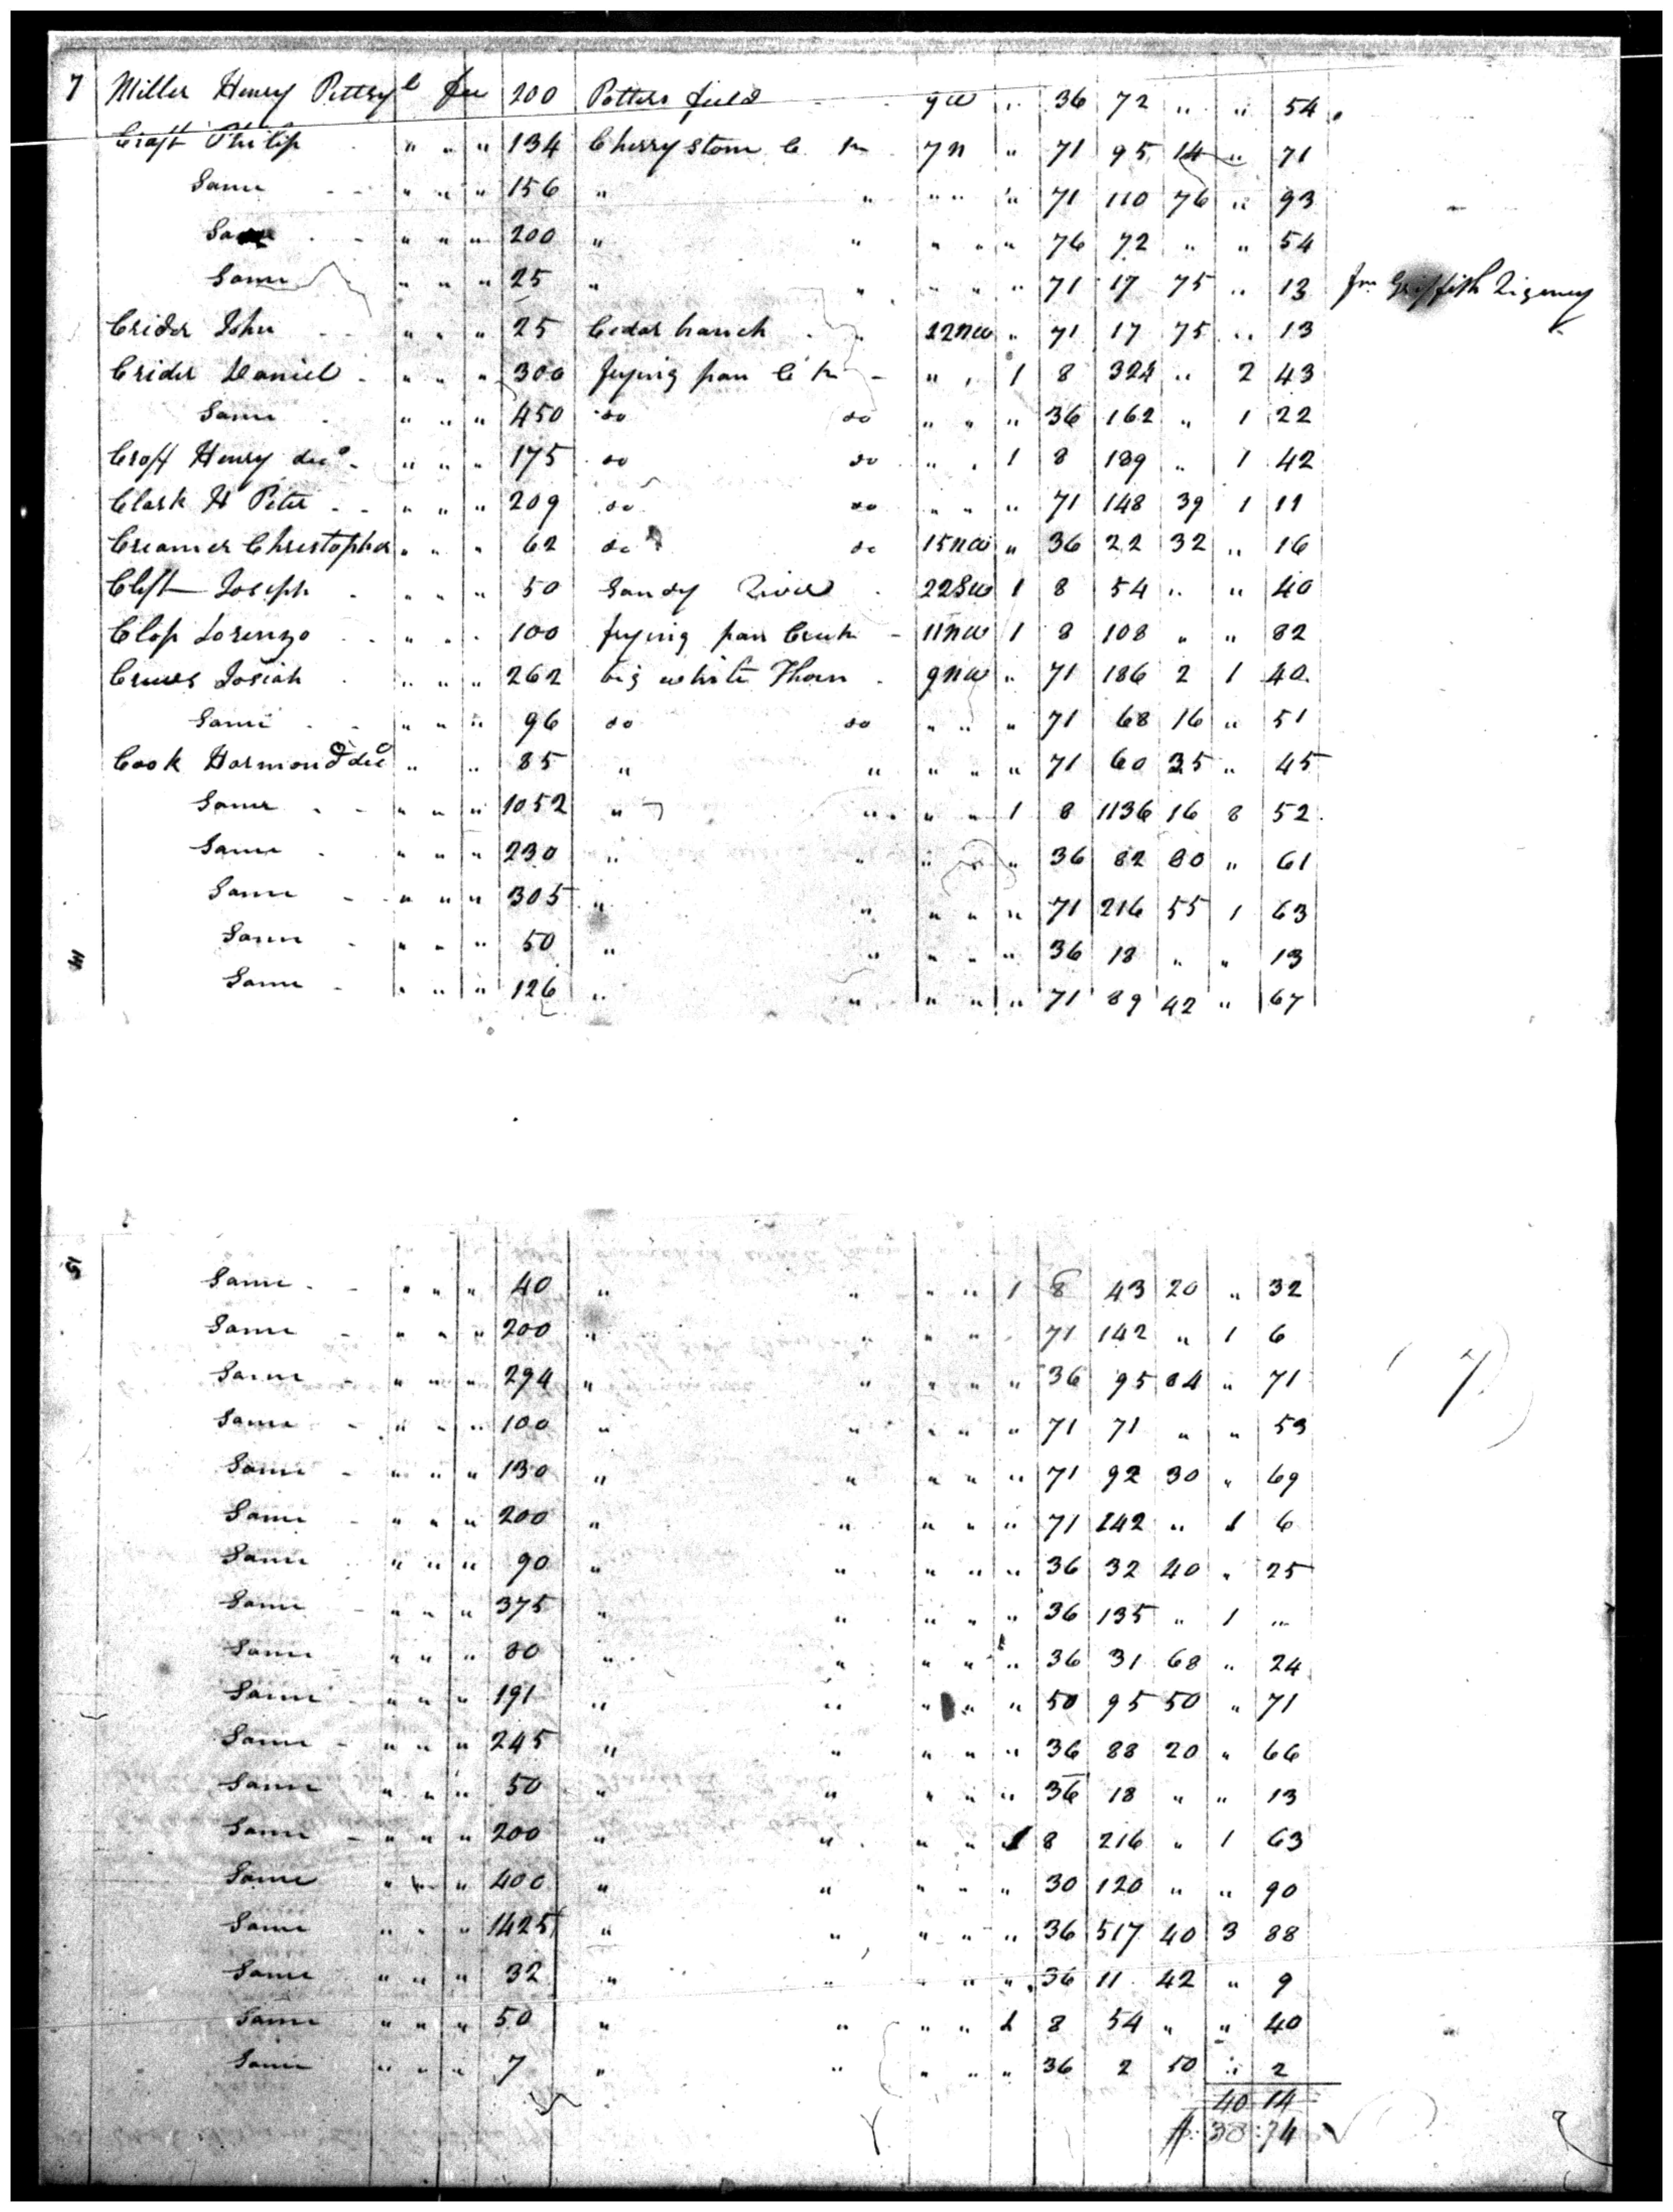 7 Miller Henry Pettsy l fee 200 Potters field 9 W " 36 72 " " 54
Craft Philip " " " 134 Cherry stone C k 7 n " 71 95 14 " 71
Same " " " 156 " " " " " 71 110 76 " 93
Same " " " 200 " " " " " 76 72 " " 54
Same " " " 25 " " " " " 71 17 75 " 13 fm Griffith
Crider John " " " 25 Cedar branch 22 n W " 71 17 75 " 13
Crider Daniel " " " 300 frying pan C k " " 1 8 324 " 2 43
Same " " " 450 do do " " " 36 162 " 1 22
Croff Henry decd " " " 175 do do " " 1 8 189 " 1 42
Clark H Peter " " " 209 do do " " " 71 148 39 1 11
Creamer Christopher " " " 62 do do 15 n W " 36 22 32 " 16
Clift Joseph " " " 50 Sandy River 22 S W 1 8 54 " " 40
Clop Lorenzo " " " 100 frying pan Creek 11 n W 1 8 108 " " 82
Crews Josiah " " " 262 big white Thorn 9 n W " 71 186 2 1 40
Same " " " 96 do do " " " 71 68 16 " 51
Cook Harmond decd " " 85 " " " " " 71 60 35 " 45
Same " " " 1052 " " " " 1 8 1136 16 8 52
Same " " " 230 " " " " " 36 82 80 " 61
Same " " " 305 " " " " " 71 216 55 1 63
Same " " " 50 " " " " " 36 18 " " 13
Same " " " 126 " " " " " 71 89 42 " 67
Same " " " 40 " " " " 1 8 43 20 " 32
Same " " " 200 " " " " 71 142 " 1 6
Same " " " 294 " " " " " 36 95 84 " 71
Same " " " 100 " " " " " 71 71 " " 53
Same " " " 130 " " " " " 71 92 30 " 69
Same " " " 200 " " " " " 71 142 " 1 6
Same " " " 90 " " " " " 36 32 40 " 25
Same " " " 375 " " " " " 36 135 " 1 "
Same " " " 80 " " " " " 36 31 68 " 24
Same " " " 191 " " " " " 50 95 50 " 71
Same " " " 245 " " " " " 36 88 20 " 66
Same " " " 50 " " " " " 36 18 " " 13
Same " " " 200 " " " " 1 8 216 " 1 63
Same " " " 400 " " " " " 30 120 " " 90
Same " " " 1425 " " " " " 36 517 40 3 88
Same " " " 32 " " " " " 36 11 42 " 9
Same " " " 50 " " " " 1 8 54 " " 40
Same " " " 7 " " " " " 36 2 50 " 2
40 14
38 74
7